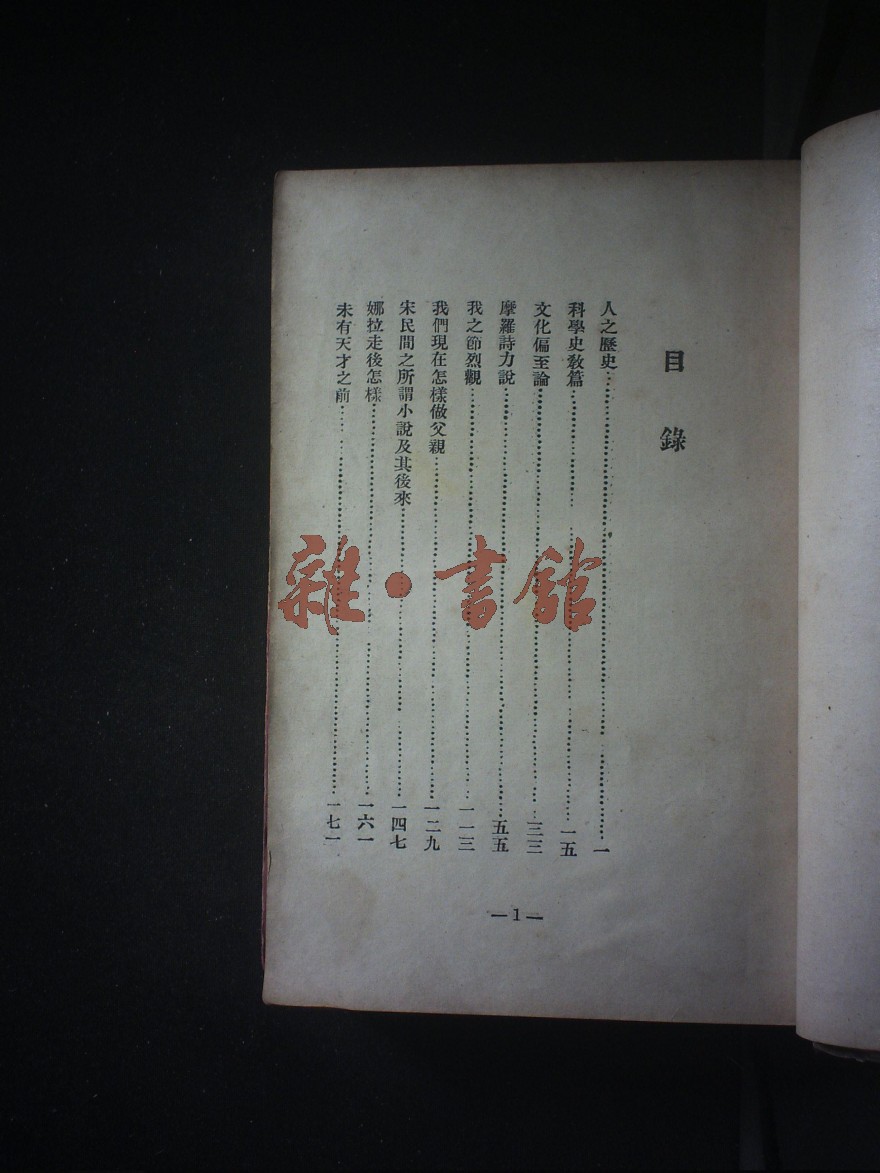 目錄
人之歷史……一
科學史敎篇……一五
文化偏至論……三三
摩羅詩力說……五五
我之節烈觀……一一三
我們現在怎樣做父親……一二九
宋民間之所謂小說及其後來……一四七
娜拉走後怎樣……一六一
未有天才之前……一七一
—1—
雜·書館